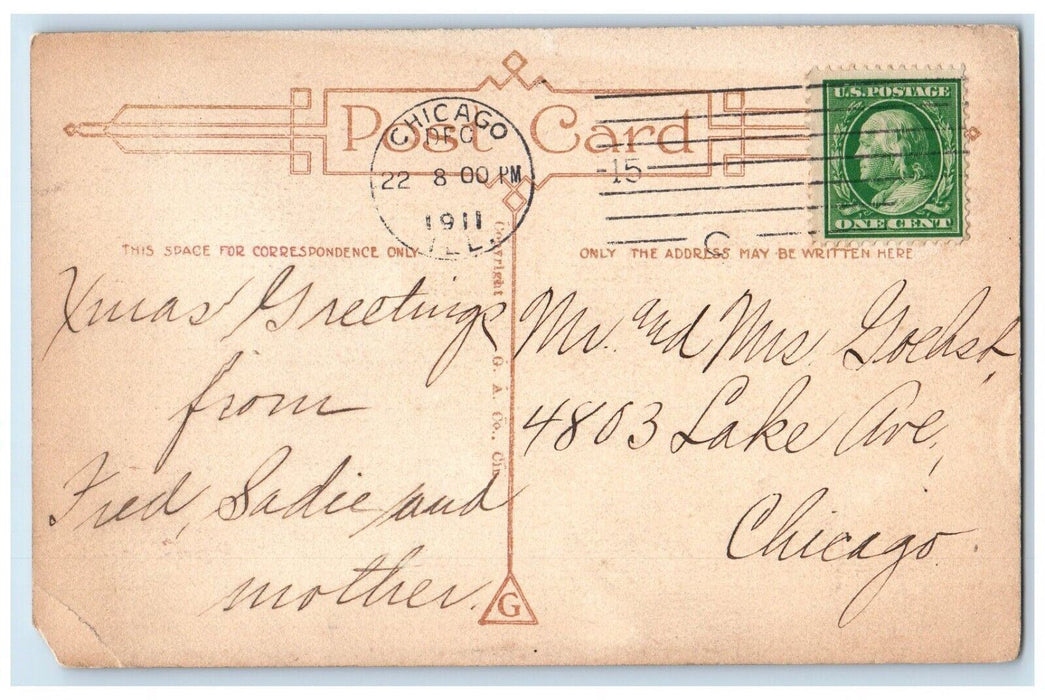 Post Card
CHICAGO
DEC
22 8 00 PM
1911
ILL.
-15
C
U.S. POSTAGE
ONE CENT
THIS SPACE FOR CORRESPONDENCE ONLY
Xmas Greetings
from
Fred, Sadie and
mother.
Copyright G. A. Co., Cin
ONLY THE ADDRESS MAY BE WRITTEN HERE
Mr. and Mrs. Goehst,
4803 Lake Ave,
Chicago.
G